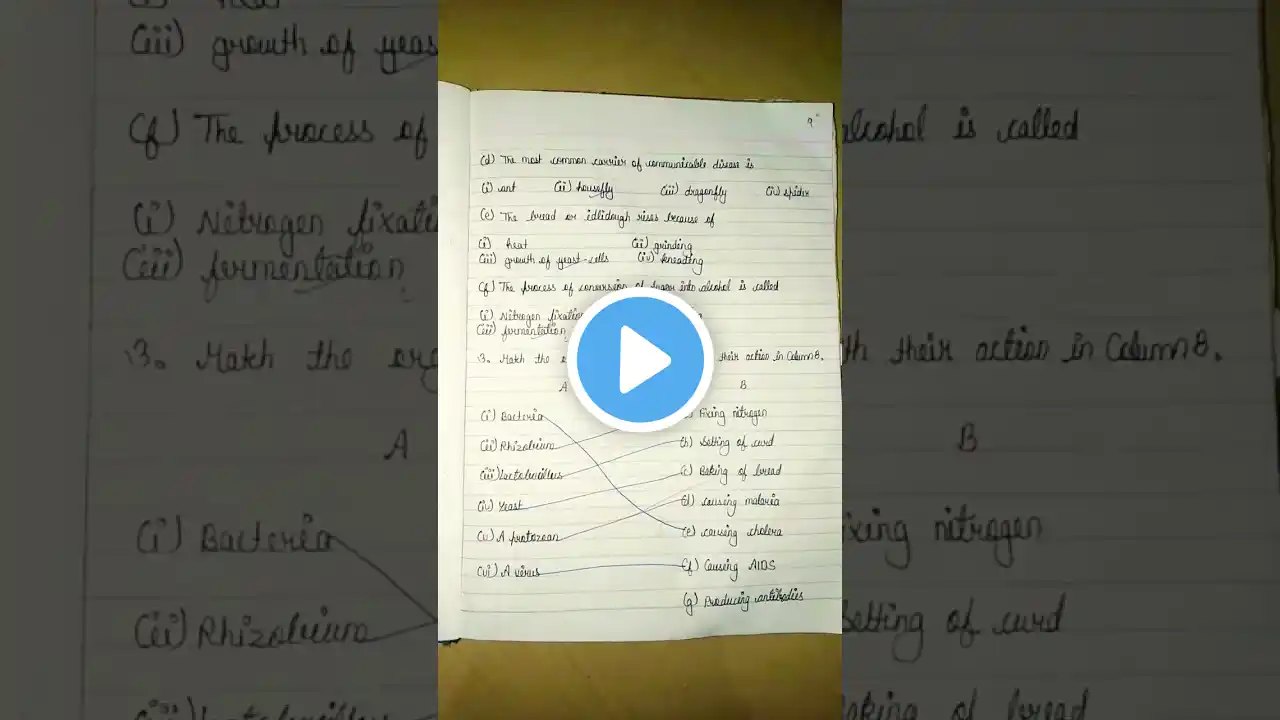 (d) The most common carrier of communicable disease is
(i) ant (ii) housefly (iii) dragonfly (iv) spider
(e) The bread or idlidough rises because of
(i) heat (ii) grinding
(iii) growth of yeast cells (iv) kneading
(f) The process of conversion of sugar into alcohol is called
(i) Nitrogen fixation
(iii) fermentation
3. Match the their action in Column B.
A B
(i) Bacteria Fixing nitrogen
(ii) Rhizobium (b) Setting of curd
(iii) Lactobacillus (c) Baking of bread
(iv) Yeast (d) causing malaria
(v) A protozoan (e) causing cholera
(vi) A virus (f) Causing AIDS
(g) Producing antibodies